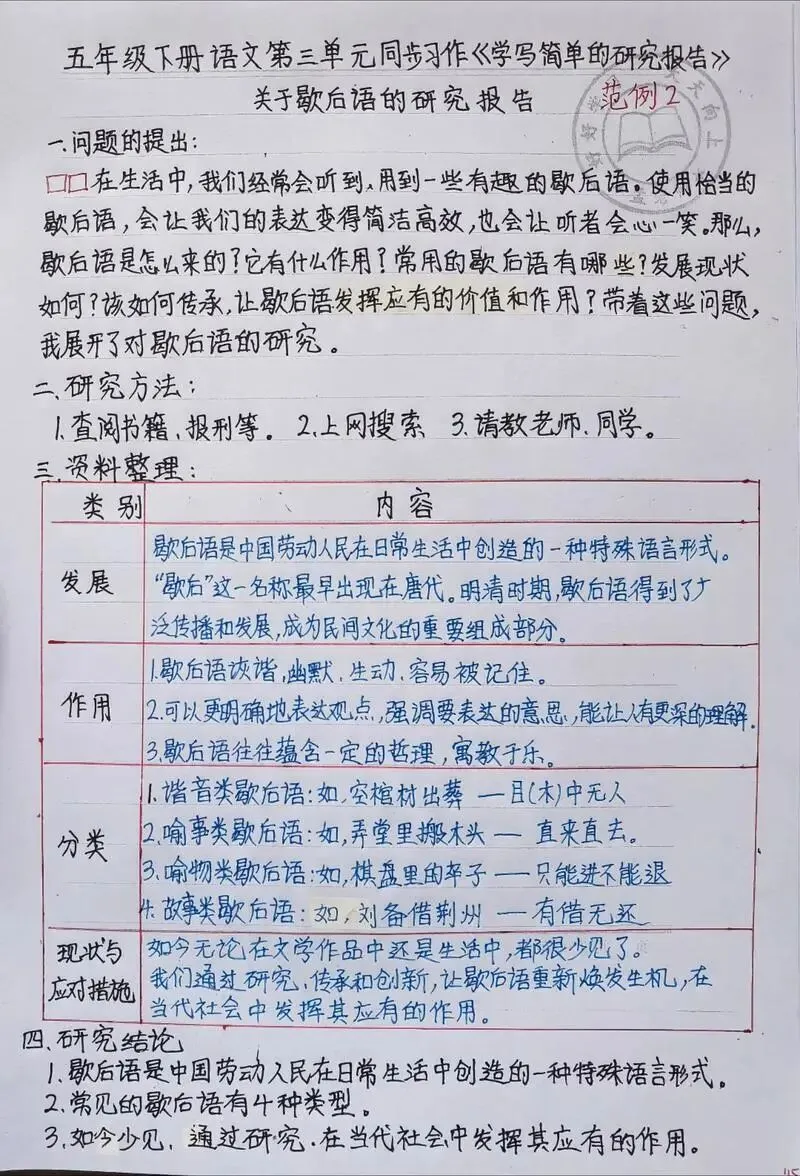 五年级下册语文第三单元同步习作《学写简单的研究报告》
关于歇后语的研究报告
范例2
天天向上
好好学
一.问题的提出:
□□在生活中,我们经常会听到、用到一些有趣的歇后语。使用恰当的
歇后语,会让我们的表达变得简洁高效,也会让听者会心一笑。那么,
歇后语是怎么来的?它有什么作用?常用的歇后语有哪些?发展现状
如何?该如何传承,让歇后语发挥应有的价值和作用?带着这些问题,
我展开了对歇后语的研究。
二.研究方法:
1.查阅书籍、报刊等。 2.上网搜索 3.请教老师、同学。
三.资料整理:
类别 内容
发展
歇后语是中国劳动人民在日常生活中创造的一种特殊语言形式。
“歇后”这一名称最早出现在唐代。明清时期,歇后语得到了广
泛传播和发展,成为民间文化的重要组成部分。
作用
1.歇后语诙谐,幽默、生动、容易被记住。
2.可以更明确地表达观点,强调要表达的意思,能让人有更深的理解.
3.歇后语往往蕴含一定的哲理,寓教于乐。
分类
1.谐音类歇后语:如,空棺材出葬 — 目(木)中无人
2.喻事类歇后语:如,弄堂里搬木头 — 直来直去。
3.喻物类歇后语:如,棋盘里的卒子 — 只能进不能退
4.故事类歇后语:如,刘备借荆州 — 有借无还
现状与
应对措施
如今无论在文学作品中还是生活中,都很少见了。
我们通过研究、传承和创新,让歇后语重新焕发生机,在
当代社会中发挥其应有的作用。
四.研究结论
1.歇后语是中国劳动人民在日常生活中创造的一种特殊语言形式。
2.常见的歇后语有4种类型。
3.如今少见,通过研究.在当代社会中发挥其应有的作用。